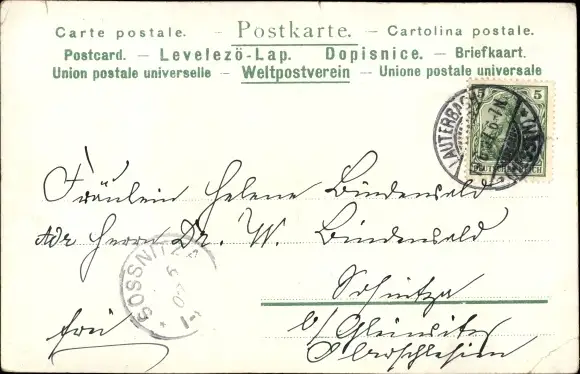 Carte postale. — Postkarte. — Cartolina postale.
Postcard. — Levelező-Lap. Dopisnice. — Briefkaart.
Union postale universelle — Weltpostverein — Unione postale universale
5
LAUTERBACH
Fräulein Helene Bindewald
Adr Herrn Dr. W. Bindewald
SOSSNITZA
Sosnitza
frei
b/ Gleiwitz
Oberschlesien